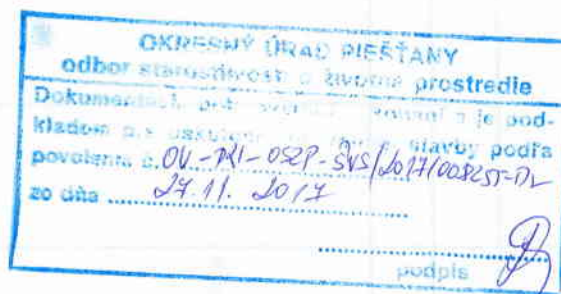 OKRESNÝ ÚRAD PIEŠŤANY
odbor starostlivosti o životné prostredie
Dokumentácia je pod-
kladom pre stavby podľa
povolenia č. OÚ-PN-OSZP-ŠVS/2017/008257-
zo dňa 27.11.2017
podpis